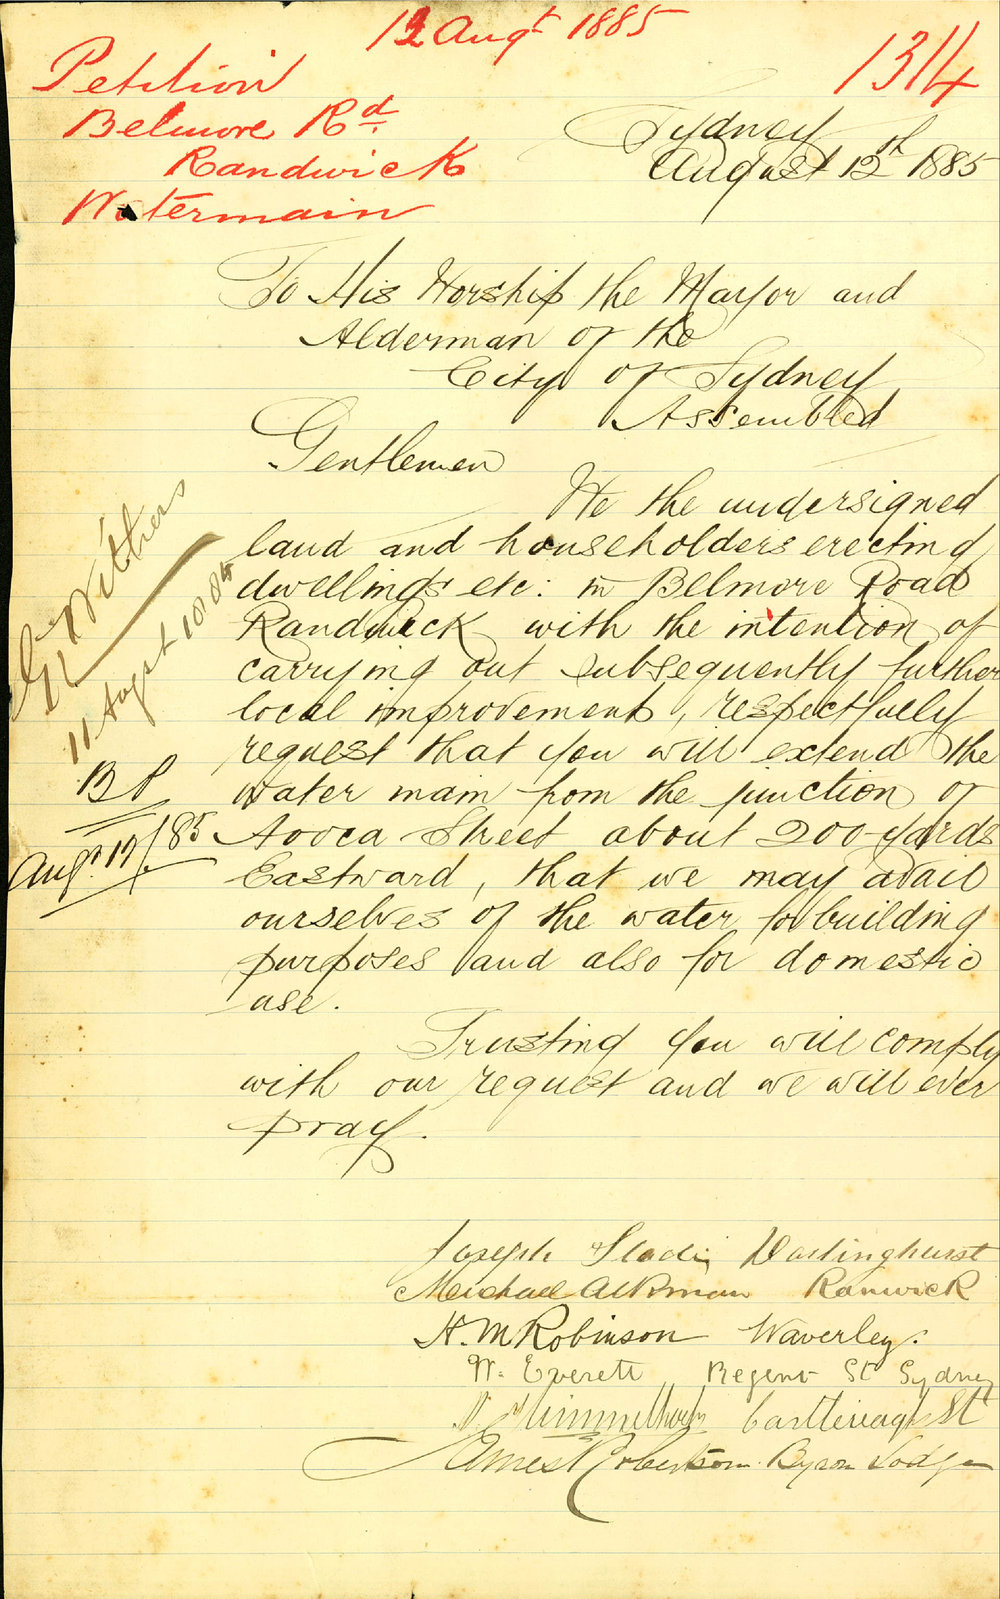 12 Augt 1885
1314
Petition
Belmore Rd.
Randwick
Watermain
Sydney
August 12th 1885
To His Worship the Mayor and
Alderman of the
City of Sydney
Assembled
Gentlemen
We the undersigned
land and householders erecting
dwellings etc: in Belmore Road
Randwick with the intention of
carrying out subsequently further
local improvement, respectfully
request that you will extend the
water main from the junction of
Avoca Street about 200 yards
Eastward, that we may avail
ourselves of the water for building
purposes and also for domestic
use.
Trusting you will comply
with our request and we will ever
pray.
Joseph Darlinghurst
Michael Ranwick
H. M Robinson Waverley.
W. Everett Regent St Sydney
Castlereagh St
Robertson Byron Lodge
Withers
11 Augst
B P
Augt 12/85